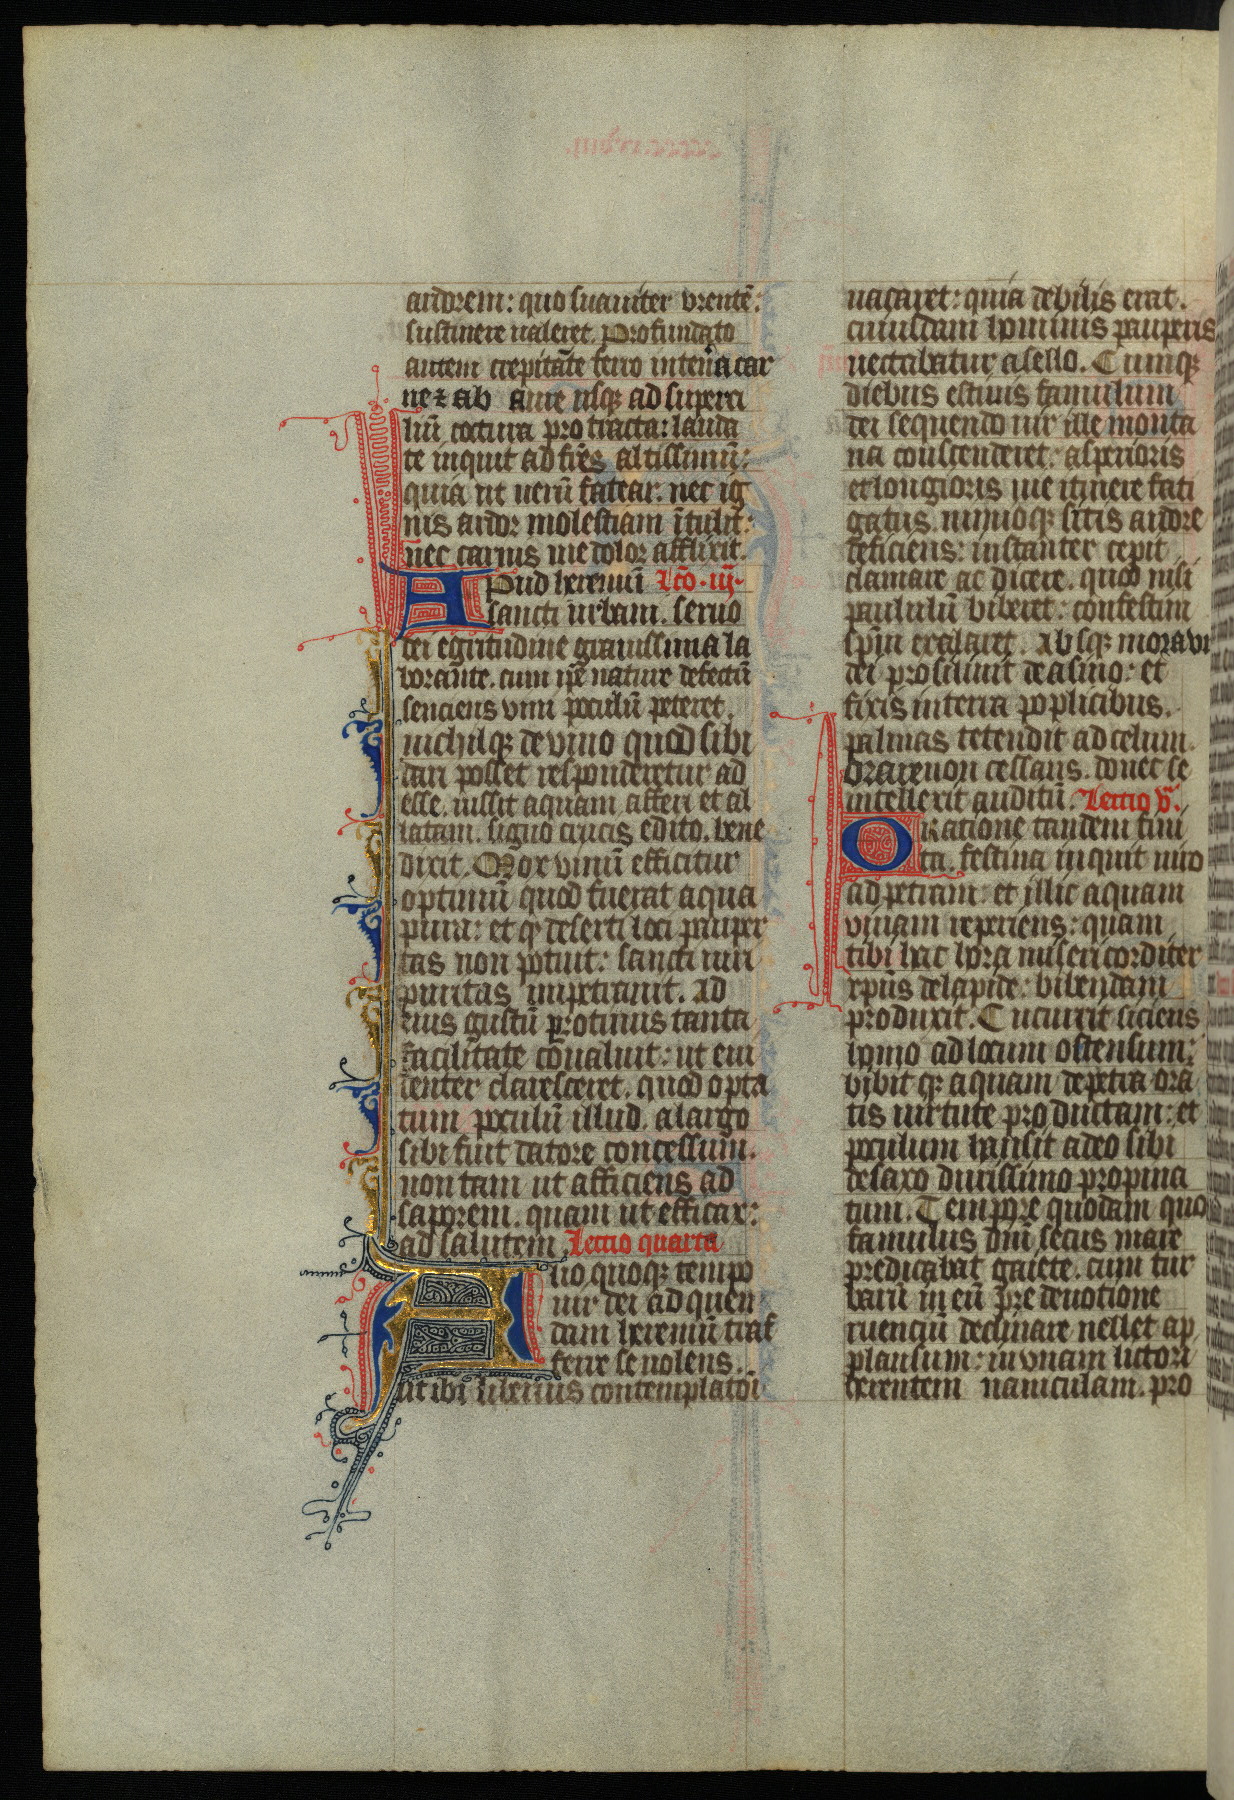 ardorem: quo suauiter vrente͂:
sustinere ualeret. Profundato
autem crepita͂te ferro inten͂a car
ne ⁊ ab aure usq ad superci
liu͂ coctura protracta: lauda
te inquit ad fr͂es altissimu͂:
quia ut ueru͂ fatear: nec ig
nis ardor molestiam i͂tulit:
nec carnis me dolor afflixit.
Apud heremu͂ Lc͂o .iij.
sancti urbani. seruo
dei egritudine grauissima la
borante. cum ip͂e nature defectu͂
senciens vini poculu͂ peteret.
nichilq de vino quod sibi
dari posset responderetur ad
esse. iussit aquam afferri et al
latam. signo crucis edito. bene
dixit. Mox vinu͂ efficitur
optimu͂ quod fuerat aqua
pura: et q deserti loci pauper
tas non potuit: sancti uiri
puritas impetrauit. Ad
cuius gustu͂ protinus tanta
facilitate co͂ualuit: ut eui
denter claresceret. quod opta
tum poculu͂ illud. a largo
sibi fuit datore concessum.
non tam ut afficiens ad
saporem. quam ut efficax:
ad salutem. Lectio quarta
Alio quoq tempo
uir dei ad quen
dam heremu͂ traf
ferre se nolens.
ut ibi liberius contemplatoi͂
uacaret: quia debilis erat.
cuiusdam hominis pauperis
uectabatur asello. Cumq
diebus estiuis famulum
dei sequendo uir ille monta
na conscenderet: asperioris
et longioris uie itinere fati
gatus. nimioq sitis ardore
deficiens: instanter cepit
clamare ac dicere. quod nisi
paululu͂ biberet: confestim
sp͂m exalaret. Absq mora vir
dei prosiliuit de asino: et
fixis in terra poplicibus.
palmas tetendit ad celum.
orare non cessans. donec se
intellexit auditu͂. Lectio v͂.
Oratione tandem fini
ta. festina inquit uiro
ad petram: et illic aquam
viuam reperiens: quam
tibi hac hora misericorditer
xpu͂s de lapide: bibendam
produxit. Cucurrit siciens
homo ad locum ostensum:
bibitq aquam de petra ora͂
tis uirtute productam: et
poculum hausit adeo sibi
de saxo durissimo propina
tum. Tempore quodam quo
famulus dn͂i secus mare
predicabat gaiete. cum tur
baru͂ in eu͂ pre deuotione
ruenciu͂ declinare uellet ap
plausum: in vnam lictori
herentem nauiculam. pro